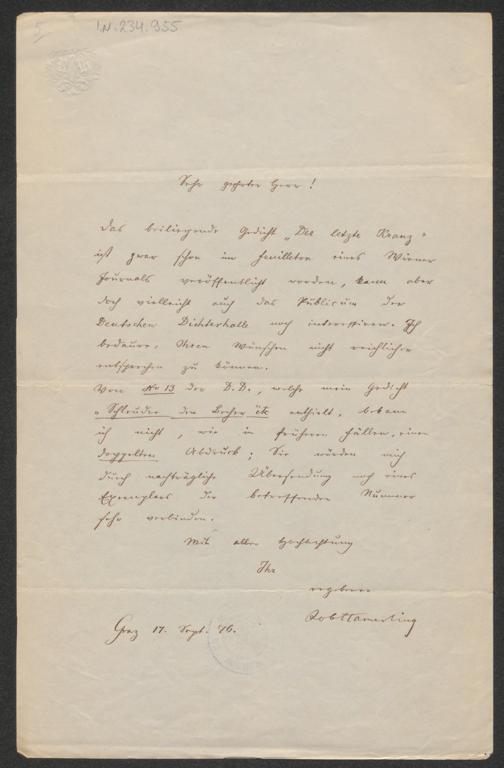 5
I.N. 234.955
Sehr geehrter Herr!
Das beiliegende Gedicht „Der letzte Kranz"
ist zwar schon im Feuilleton eines Wiener
Journals veröffentlicht worden, kann aber
doch vielleicht auch das Publicum der
Deutschen Dichterhalle noch interessiren. Ich
bedaure, Ihren Wünschen nicht reichlicher
entsprechen zu können.
Von No 13 der D.D., welche mein Gedicht
„Schleudre den Becher" etc enthielt, bekam
ich nicht, wie in früheren Fällen, einen
doppelten Abdruck; Sie würden mich
durch nachträgliche Übersendung noch eines
Exemplars der betreffenden Nummer
sehr verbinden.
Mit aller Hochachtung
Ihr
ergebener
Rob Hamerling
Graz 17. Sept. 76.